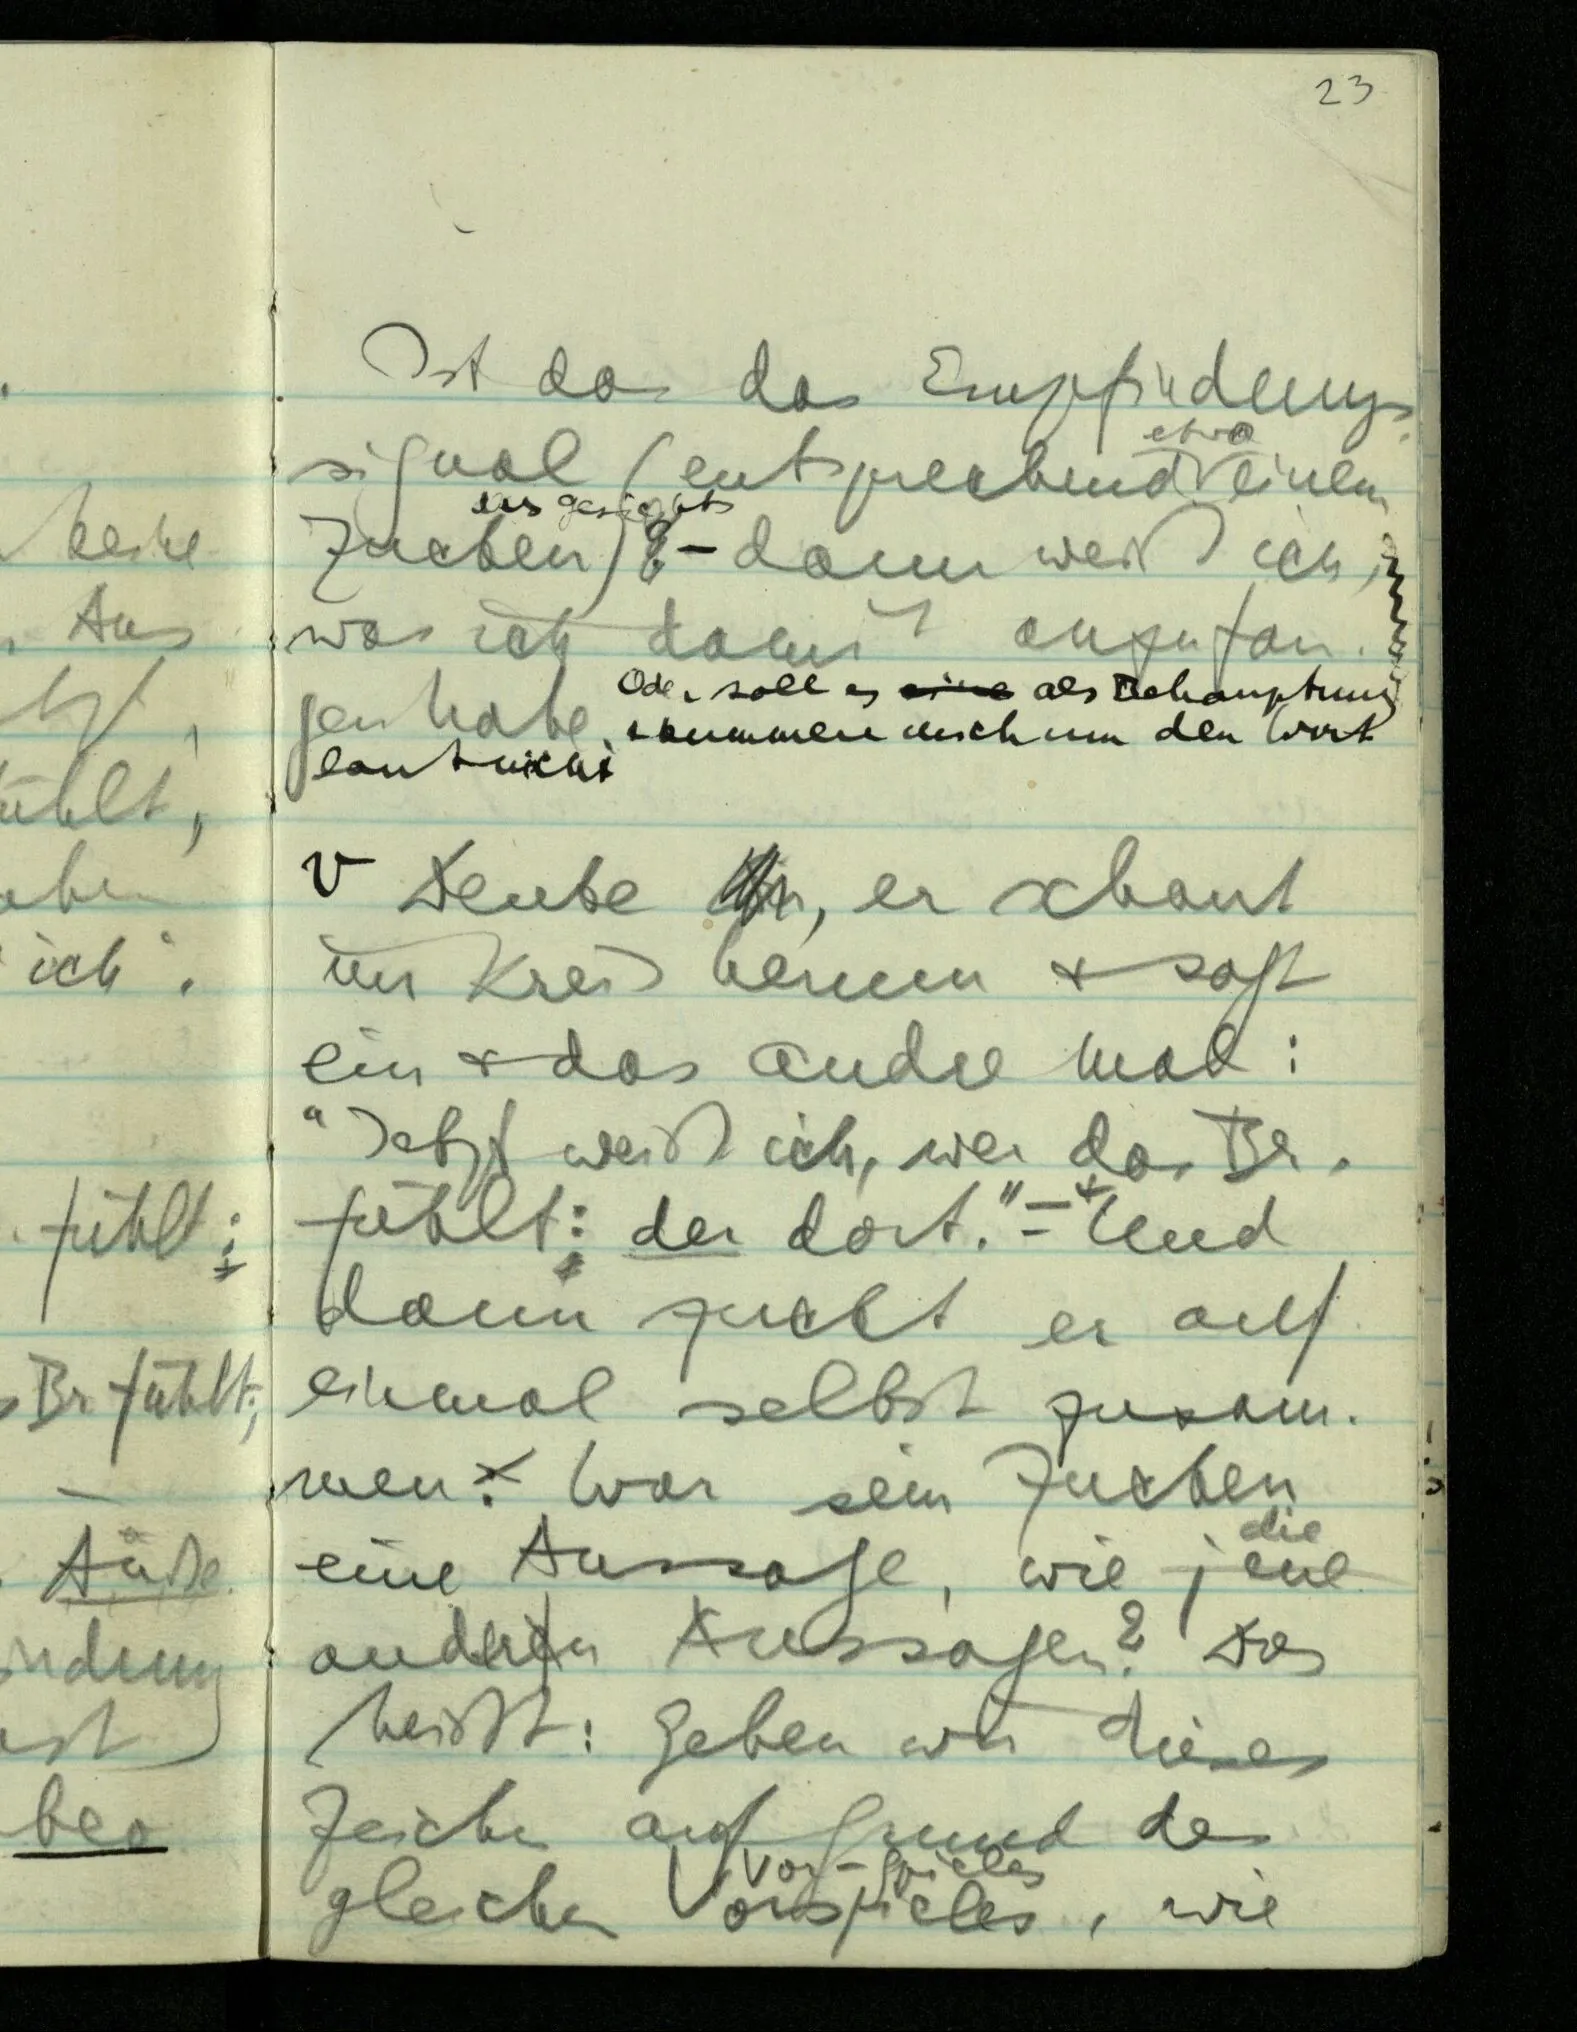 23
Ist das das Empfindungs-
etwa
signal (entsprechend einem
des Gesichts
Zucken)? – dann weiß ich,
was ich damit anzufan-
gen habe. Oder soll es eine als Behauptung
kümmere mich um den Wort
laut nicht
V Denke, er schaut
im Kreis herum & sagt
ein & das andre Mal:
"Jetzt weiß ich, wer das Br.
fühlt: der dort." – Und
dann zuckt er auf
einmal selbst zusam-
men. War sein Zucken
die
eine Aussage, wie jene
andern Aussagen? Das
heißt: Geben wir dieses
Zeichen auf Grund des
Vor-Spieles
gleichen Vorspieles, wie
keine
Aus
ühlt,
aben
ich".
fühlt;
Br fühlt;
–
Äuße
ndung
ast
beo